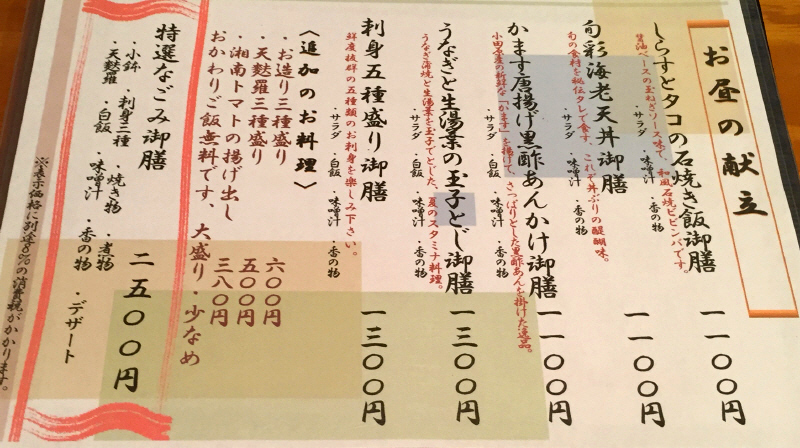 お昼の献立
しらすとタコの石焼き飯御膳 一一〇〇円
醤油ベースの玉ねぎソース味で、和風石焼ビビンバです。
・サラダ ・味噌汁 ・香の物
旬彩海老天丼御膳 一一〇〇円
旬の食材を秘伝タレで食す、これぞ丼ぶりの醍醐味。
・サラダ ・味噌汁 ・香の物
かます唐揚げ黒酢あんかけ御膳 一一〇〇円
小田原産の新鮮な「かます」を揚げて、さっぱりとした黒酢あんを掛けた逸品。
・サラダ ・白飯 ・味噌汁 ・香の物
うなぎと生湯葉の玉子とじ御膳 一三〇〇円
うなぎ蒲焼と生湯葉を玉子でとじた、夏のスタミナ料理。
・サラダ ・白飯 ・味噌汁 ・香の物
刺身五種盛り御膳 一三〇〇円
鮮度抜群の五種類のお刺身を楽しみ下さい。
・サラダ ・白飯 ・味噌汁 ・香の物
〈追加のお料理〉
・お造り三種盛り 六〇〇円
・天麩羅三種盛り 五〇〇円
・湘南トマトの揚げ出し 三八〇円
おかわりご飯無料です、大盛り・少なめ
特選なごみ御膳 二五〇〇円
・小鉢 ・刺身三種 ・焼き物 ・煮物
・天麩羅 ・白飯 ・味噌汁 ・香の物 ・デザート
※表示価格に別途8%の消費税がかかります。